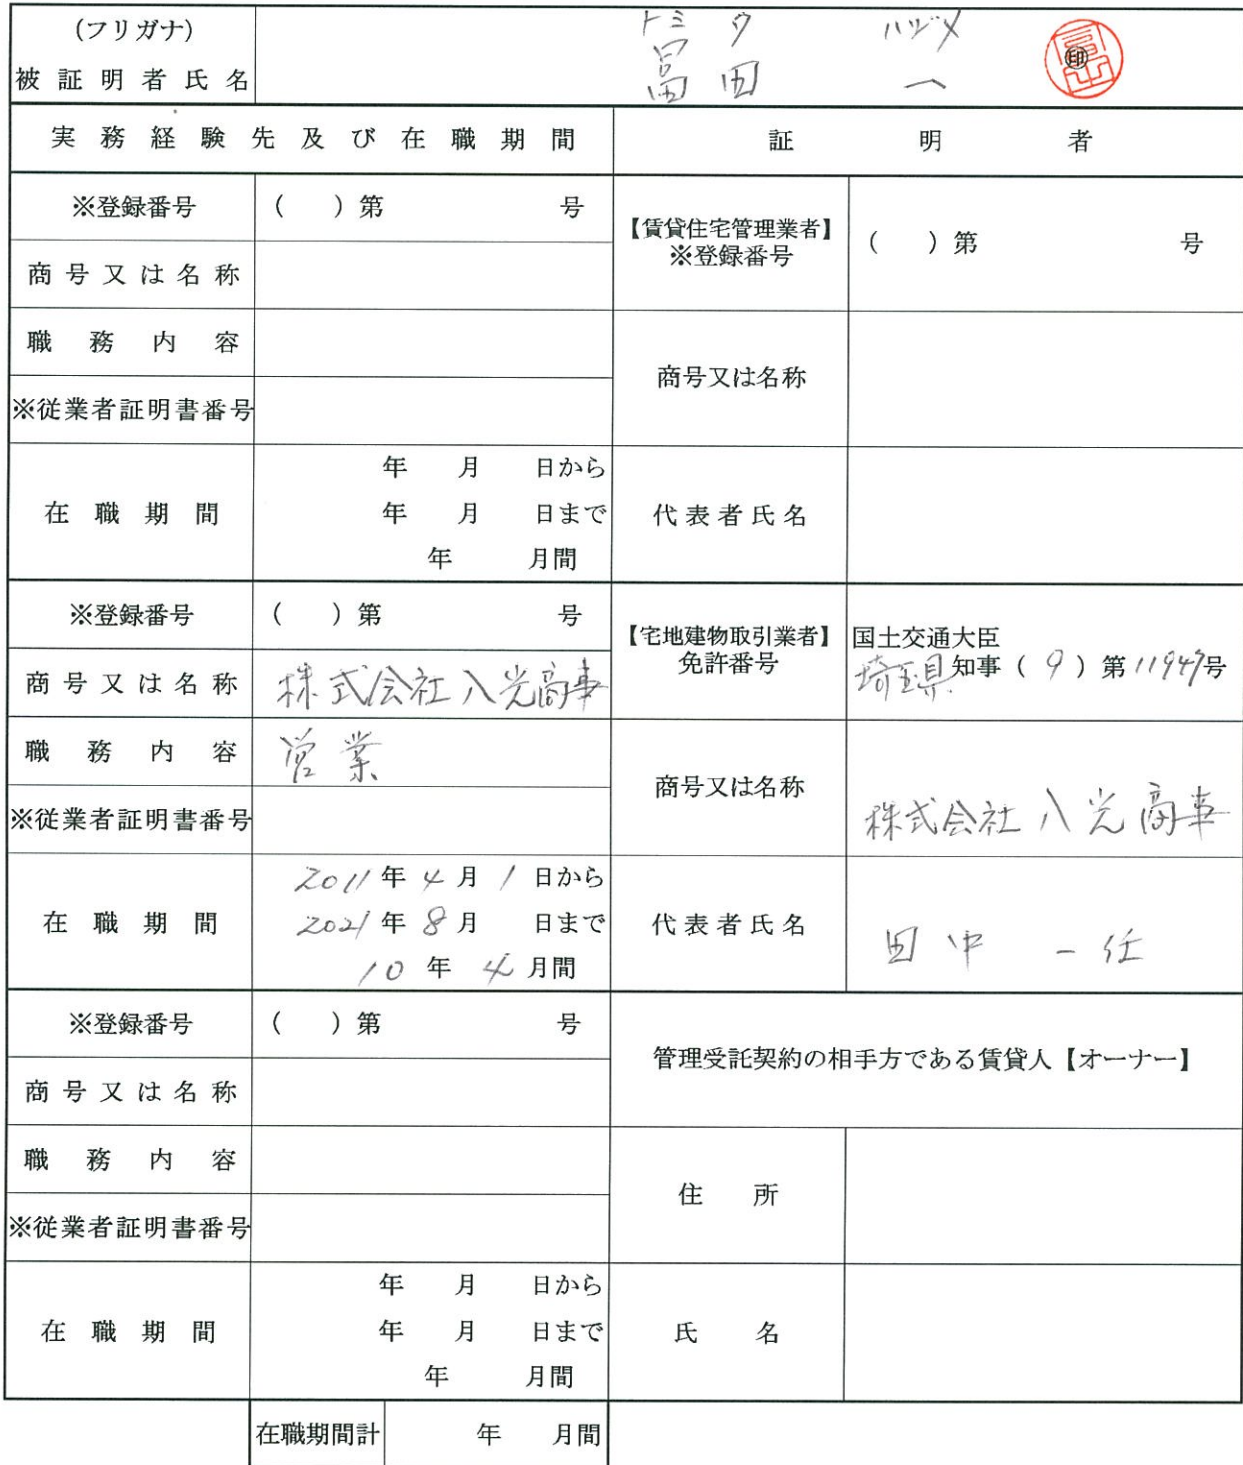 (フリガナ) トミタ ハジメ
被証明者氏名 冨田 一 ㊞
実務経験先及び在職期間 証明者
※登録番号 ( )第 号
【賃貸住宅管理業者】
※登録番号 ( )第 号
商号又は名称
職務内容
商号又は名称
※従業者証明書番号
在職期間
年 月 日から
年 月 日まで
年 月間
代表者氏名
※登録番号 ( )第 号
【宅地建物取引業者】
免許番号
国土交通大臣
埼玉県知事(9)第11947号
商号又は名称 株式会社八光商事
職務内容 営業
商号又は名称 株式会社八光商事
※従業者証明書番号
在職期間
2011年4月1日から
2021年8月 日まで
10年4月間
代表者氏名 田中 一任
※登録番号 ( )第 号
管理受託契約の相手方である賃貸人【オーナー】
商号又は名称
職務内容
住所
※従業者証明書番号
在職期間
年 月 日から
年 月 日まで
年 月間
氏名
在職期間計 年 月間